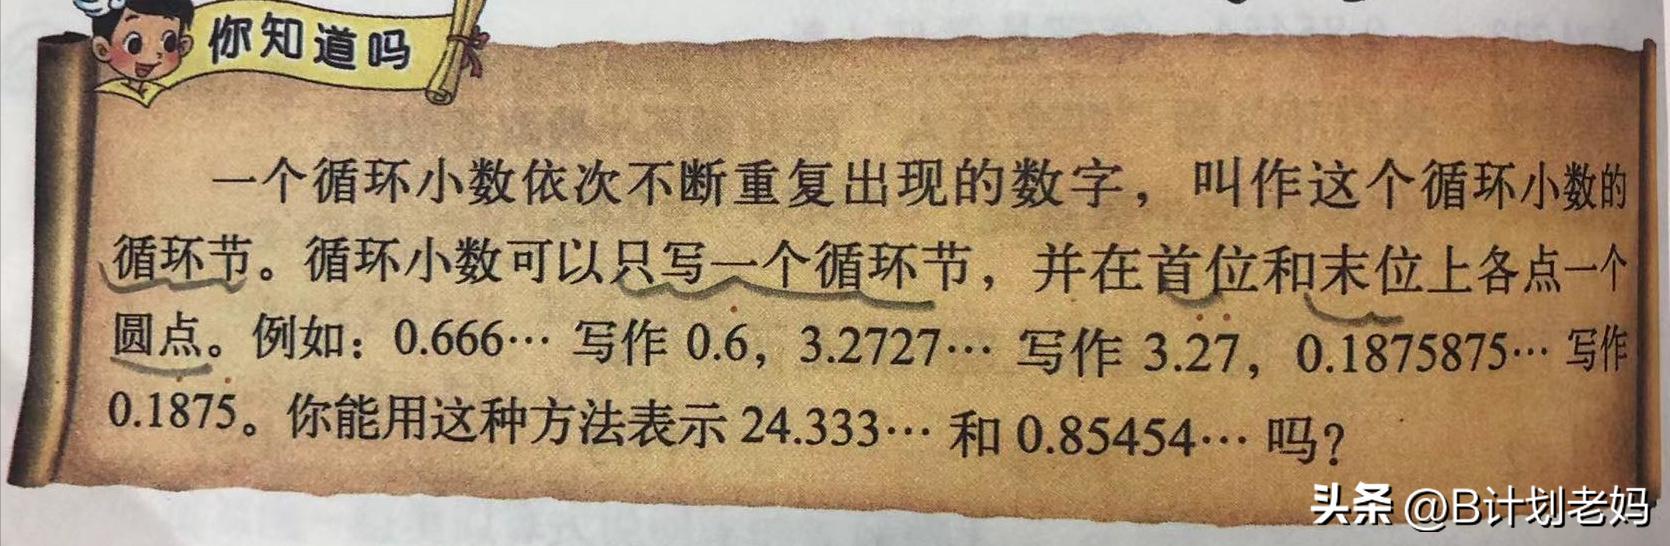 你知道吗
一个循环小数依次不断重复出现的数字，叫作这个循环小数的
循环节。循环小数可以只写一个循环节，并在首位和末位上各点一个
圆点。例如：0.666… 写作 0.6̇，3.2727… 写作 3.2̇7̇，0.1875875… 写作
0.18̇75̇。你能用这种方法表示 24.333… 和 0.85454… 吗？
头条 @B计划老妈